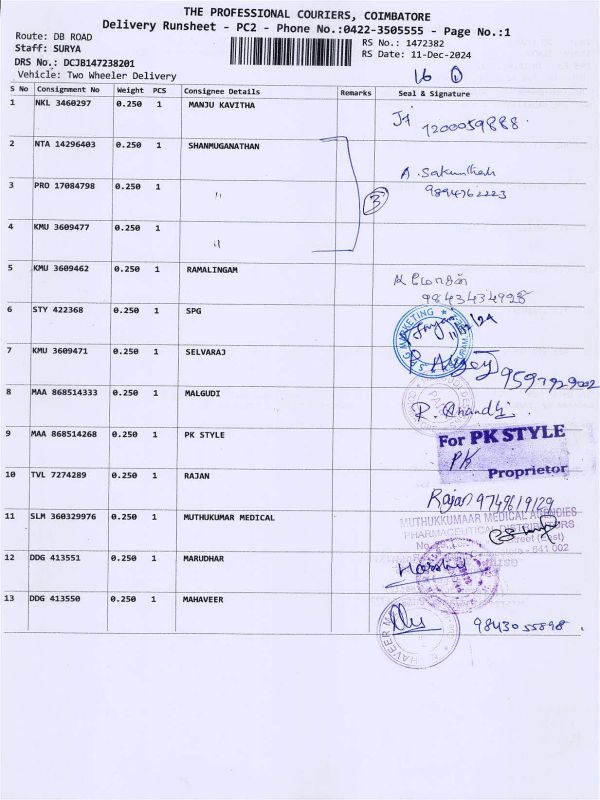 THE PROFESSIONAL COURIERS, COIMBATORE
Delivery Runsheet - PC2 - Phone No.:0422-3505555 - Page No.:1
Route: DB ROAD
RS No.: 1472382
Staff: SURYA
RS Date: 11-Dec-2024
DRS No.: DCJB147238201
Vehicle: Two Wheeler Delivery
16 1
S No Consignment No Weight PCS Consignee Details Remarks Seal & Signature
1 NKL 3460297 0.250 1 MANJU KAVITHA
7200059888.
2 NTA 14296403 0.250 1 SHANMUGANATHAN
A. Sakunthala
3 PRO 17084798 0.250 1 " 3
9894762223
4 KMU 3609477 0.250 1 "
5 KMU 3609462 0.250 1 RAMALINGAM
9843434928
6 STY 422368 0.250 1 SPG
MARKETING
11/12/24
7 KMU 3609471 0.250 1 SELVARAJ
9597929002
8 MAA 868514333 0.250 1 MALGUDI
R. Anandhi
9 MAA 868514268 0.250 1 PK STYLE
For PK STYLE
PK
Proprietor
10 TVL 7274289 0.250 1 RAJAN
Rajan 9749619129
11 SLM 360329976 0.250 1 MUTHUKUMAR MEDICAL
MUTHUKKUMAAR MEDICAL AGENCIES
PHARMACEUTICAL DISTRIBUTORS
Street (East)
641 002
12 DDG 413551 0.250 1 MARUDHAR
13 DDG 413550 0.250 1 MAHAVEER
9843055898.